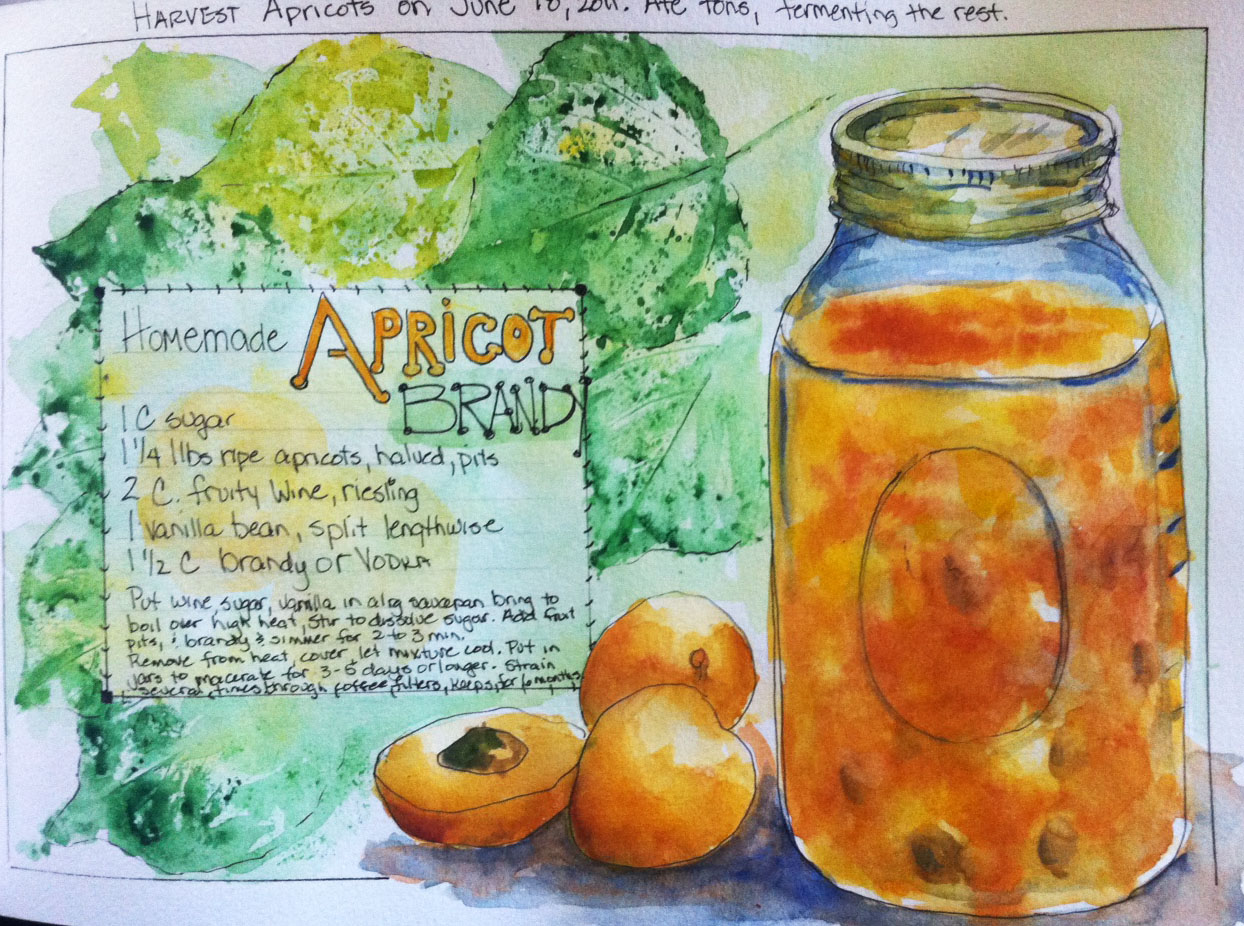 HARVEST Apricots on June 18, 2011. Ate tons, fermenting the rest.
Homemade APRICOT
BRANDY
1 C sugar
1 1/4 lbs ripe apricots, halved, pits
2 C. fruity wine, riesling
1 vanilla bean, split lengthwise
1 1/2 C brandy or VODKA
Put wine, sugar, vanilla in a lrg saucepan bring to
boil over high heat, stir to dissolve sugar. Add fruit
pits, & brandy & simmer for 2 to 3 min.
Remove from heat, cover let mixture cool. Put in
jars to macerate for 3-5 days or longer. Strain
several times through coffee filters, keeps for 6 months